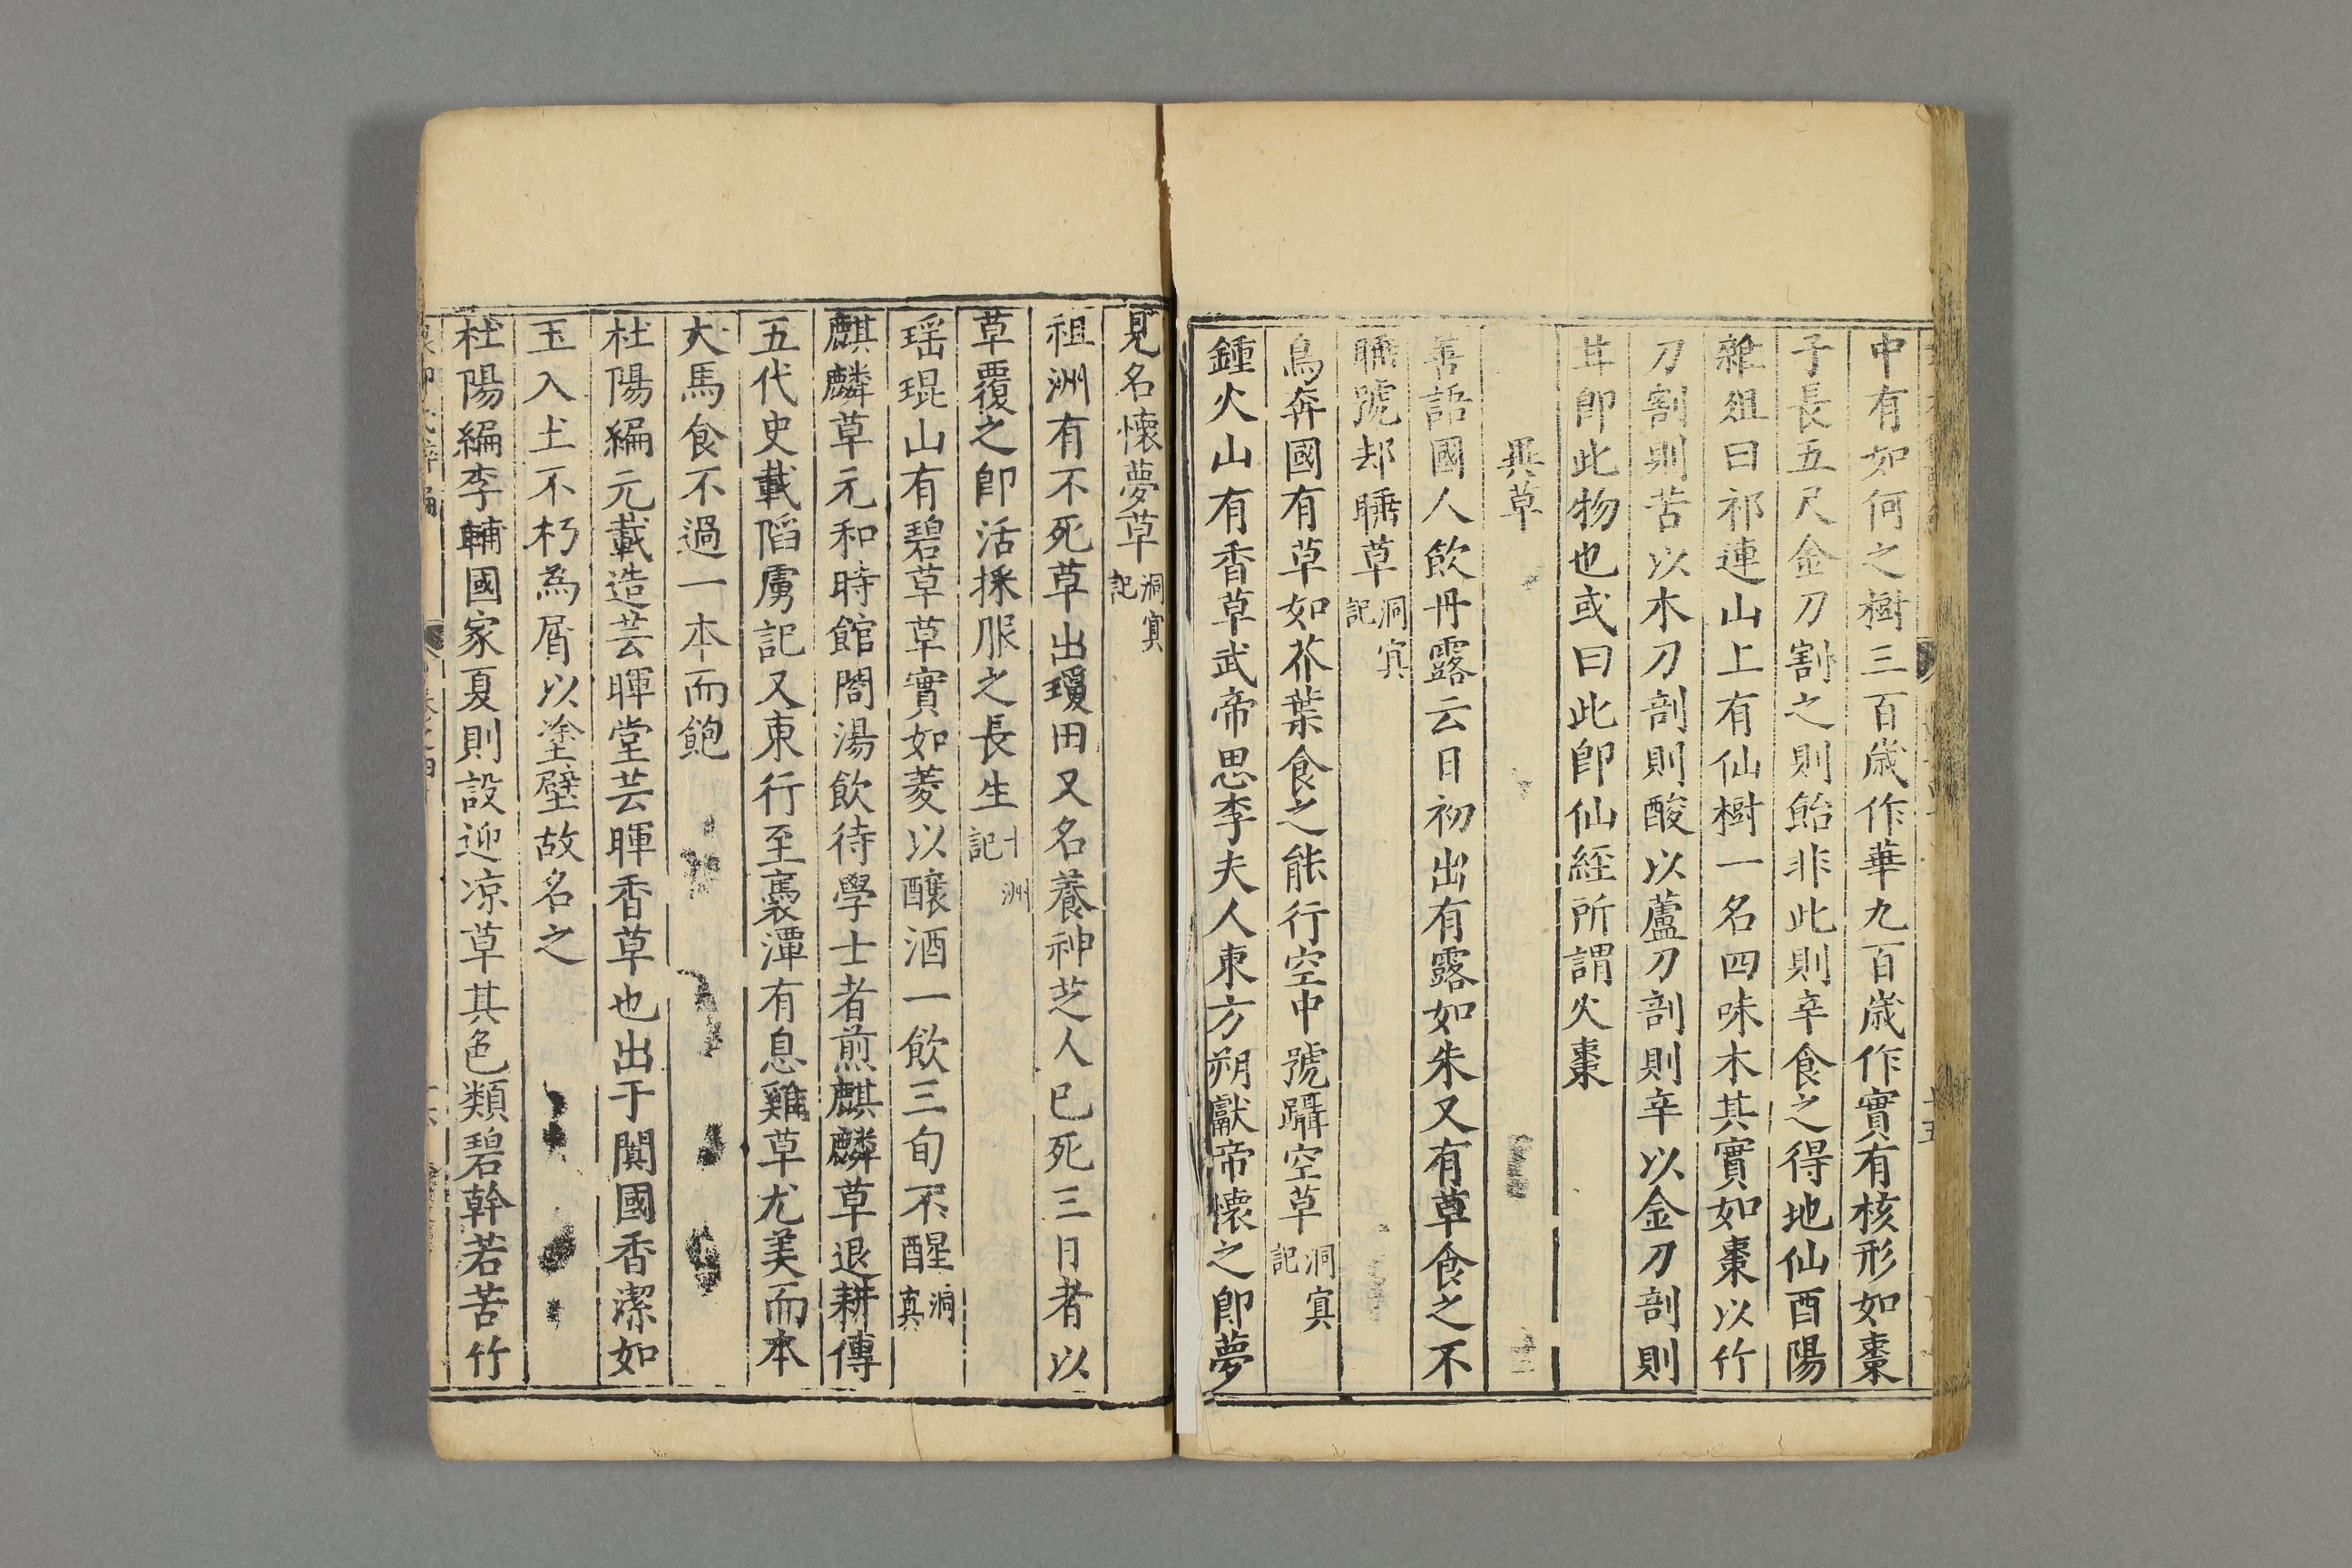 中有如何之樹三百歲作華九百歲作實有核形如棗
子長五尺金刀割之則飴非此則辛食之得地仙酉陽
雜俎曰祁連山上有仙樹一名四味木其實如棗以竹
刀割則苦以木刀剖則酸以蘆刀剖則辛以金刀剖則
甘卽此物也或曰此卽仙経所謂火棗
異草
善語國人飲丹露云日初出有露如朱又有草食之不
睡號却睡草洞冥記
鳥奔國有草如芥葉食之能行空中號躡空草洞冥記
鍾火山有香草武帝思李夫人東方朔獻帝懷之卽夢
見名懷夢草洞冥記
祖洲有不死草出瓊田又名養神芝人已死三日者以
草覆之卽活採服之長生十洲記
瑶琨山有碧草草實如菱以釀酒一飲三旬不醒洞真
麒麟草元和時館閣湯飲待學士者煎麒麟草退耕傳
五代史載䧟虜記又東行至褭潭有息雞草尤美而本
大馬食不過一本而飽
杜陽編元載造芸暉堂芸暉香草也出于闐國香潔如
玉入土不朽為屑以塗壁故名之
杜陽編李輔國家夏則設迎凉草其色類碧幹若苦竹